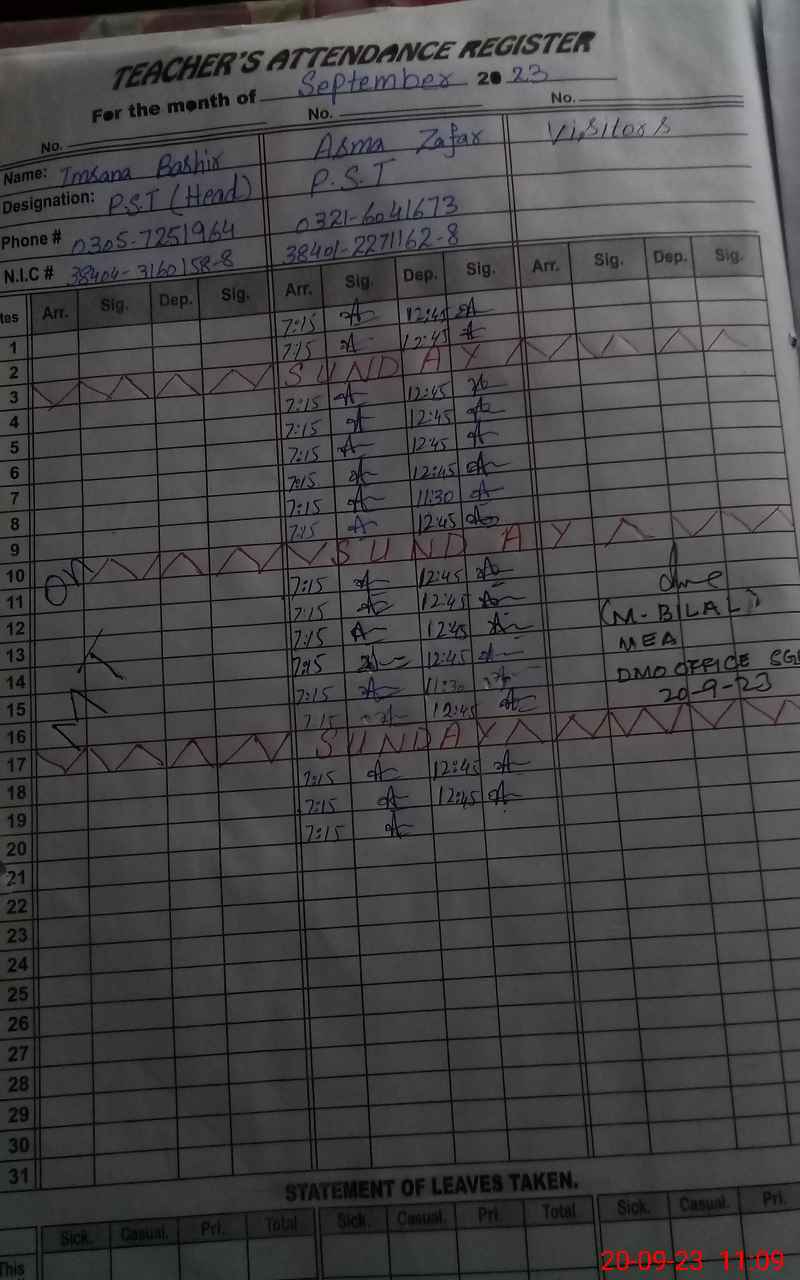 TEACHER'S ATTENDANCE REGISTER
For the month of September 2023
No. No. No.
Name: Imsana Bashir Asma Zafar Visitors
Designation: P.S.T (Head) P.S.T
Phone # 0305-7251964 0321-6041673
N.I.C # 38404-3160158-8 38401-2271162-8
tes Arr. Sig. Dep. Sig. Arr. Sig. Dep. Sig. Arr. Sig. Dep. Sig.
1 7:15 12:45
2 7:15 12:45
3 SUNDAY
4 7:15 12:45
5 7:15 12:45
6 7:15 12:45
7 7:15 12:45
8 7:15 11:30
9 7:15 12:45
10 SUNDAY
11 7:15 12:45
12 7:15 12:45
13 7:15 12:45
14 7:15 12:45
15 7:15 11:30
16 7:15 12:45
17 SUNDAY
18 7:15 12:45
19 7:15 12:45
20 7:15
21
22
23
24
25
26
27
28
29
30
31
On
(M. BILAL)
MEA
DMO OFFICE SG
20-9-23
STATEMENT OF LEAVES TAKEN.
Sick. Casual. Pri. Total Sick. Casual. Pri. Total Sick. Casual. Pri.
This
20-09-23 11:09